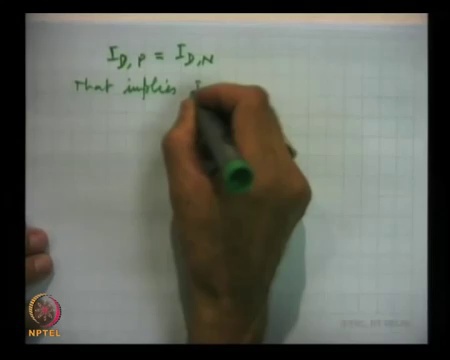 I_D,P = I_D,N
That implies I
NPTEL